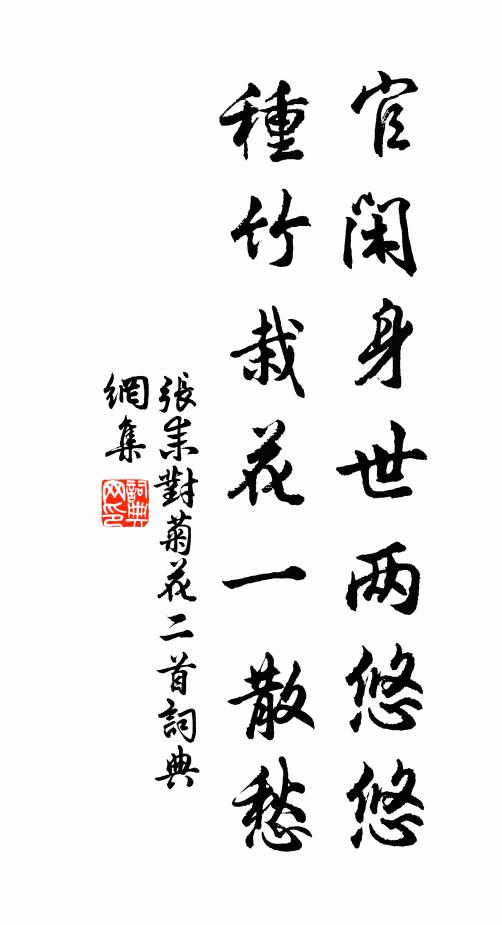 官闲身世两悠悠
種竹栽花一散愁
張耒對菊花二首詞典
網集
詞典
网印